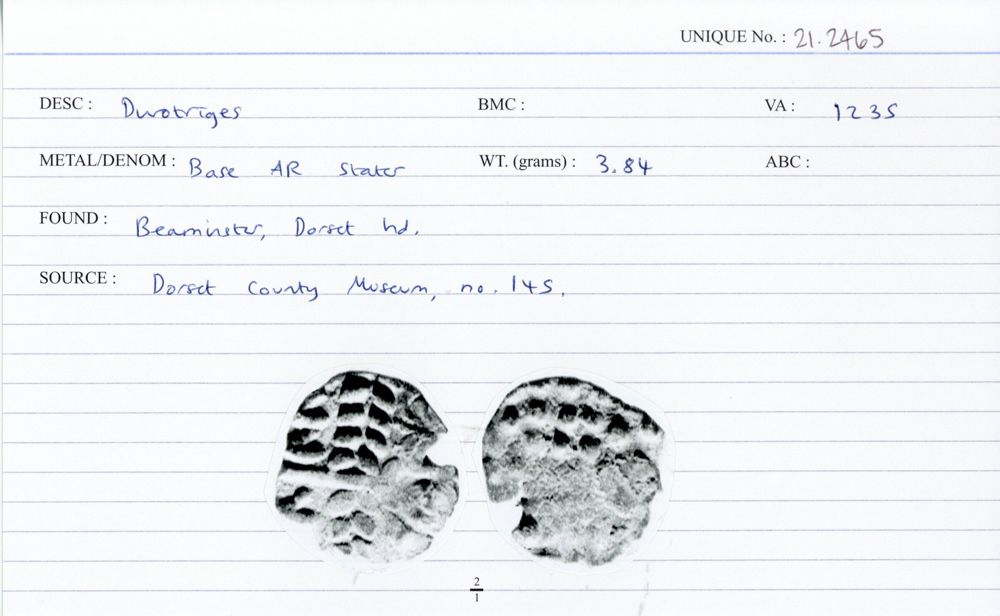 UNIQUE No. : 21.2465
DESC : Durotriges BMC : VA : 1235
METAL/DENOM : Base AR Stater WT. (grams) : 3.84 ABC :
FOUND : Beaminster, Dorset hd.
SOURCE : Dorset County Museum, no. 145.
2
1